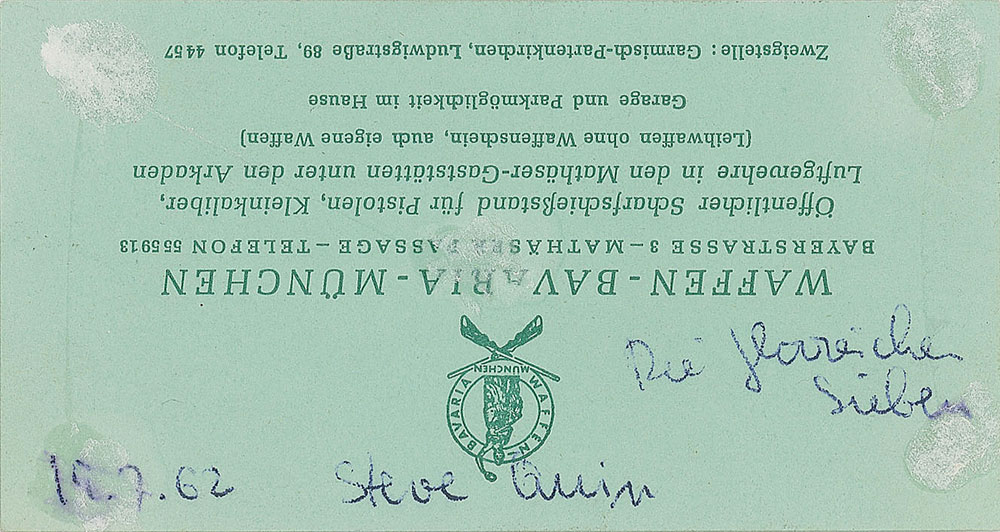 WAFFEN-BAVARIA-MÜNCHEN
BAYERSTRASSE 3 – MATHÄSER PASSAGE – TELEFON 555913
Öffentlicher Scharfschießstand für Pistolen, Kleinkaliber,
Luftgewehre in den Mathäser-Gaststätten unter den Arkaden
(Leihwaffen ohne Waffenschein, auch eigene Waffen)
Garage und Parkmöglichkeit im Hause
Zweigstelle: Garmisch-Partenkirchen, Ludwigstraße 89, Telefon 4457
WAFFEN
BAVARIA
MÜNCHEN
Die glorreichen
Sieben
7.62
Steve Quin